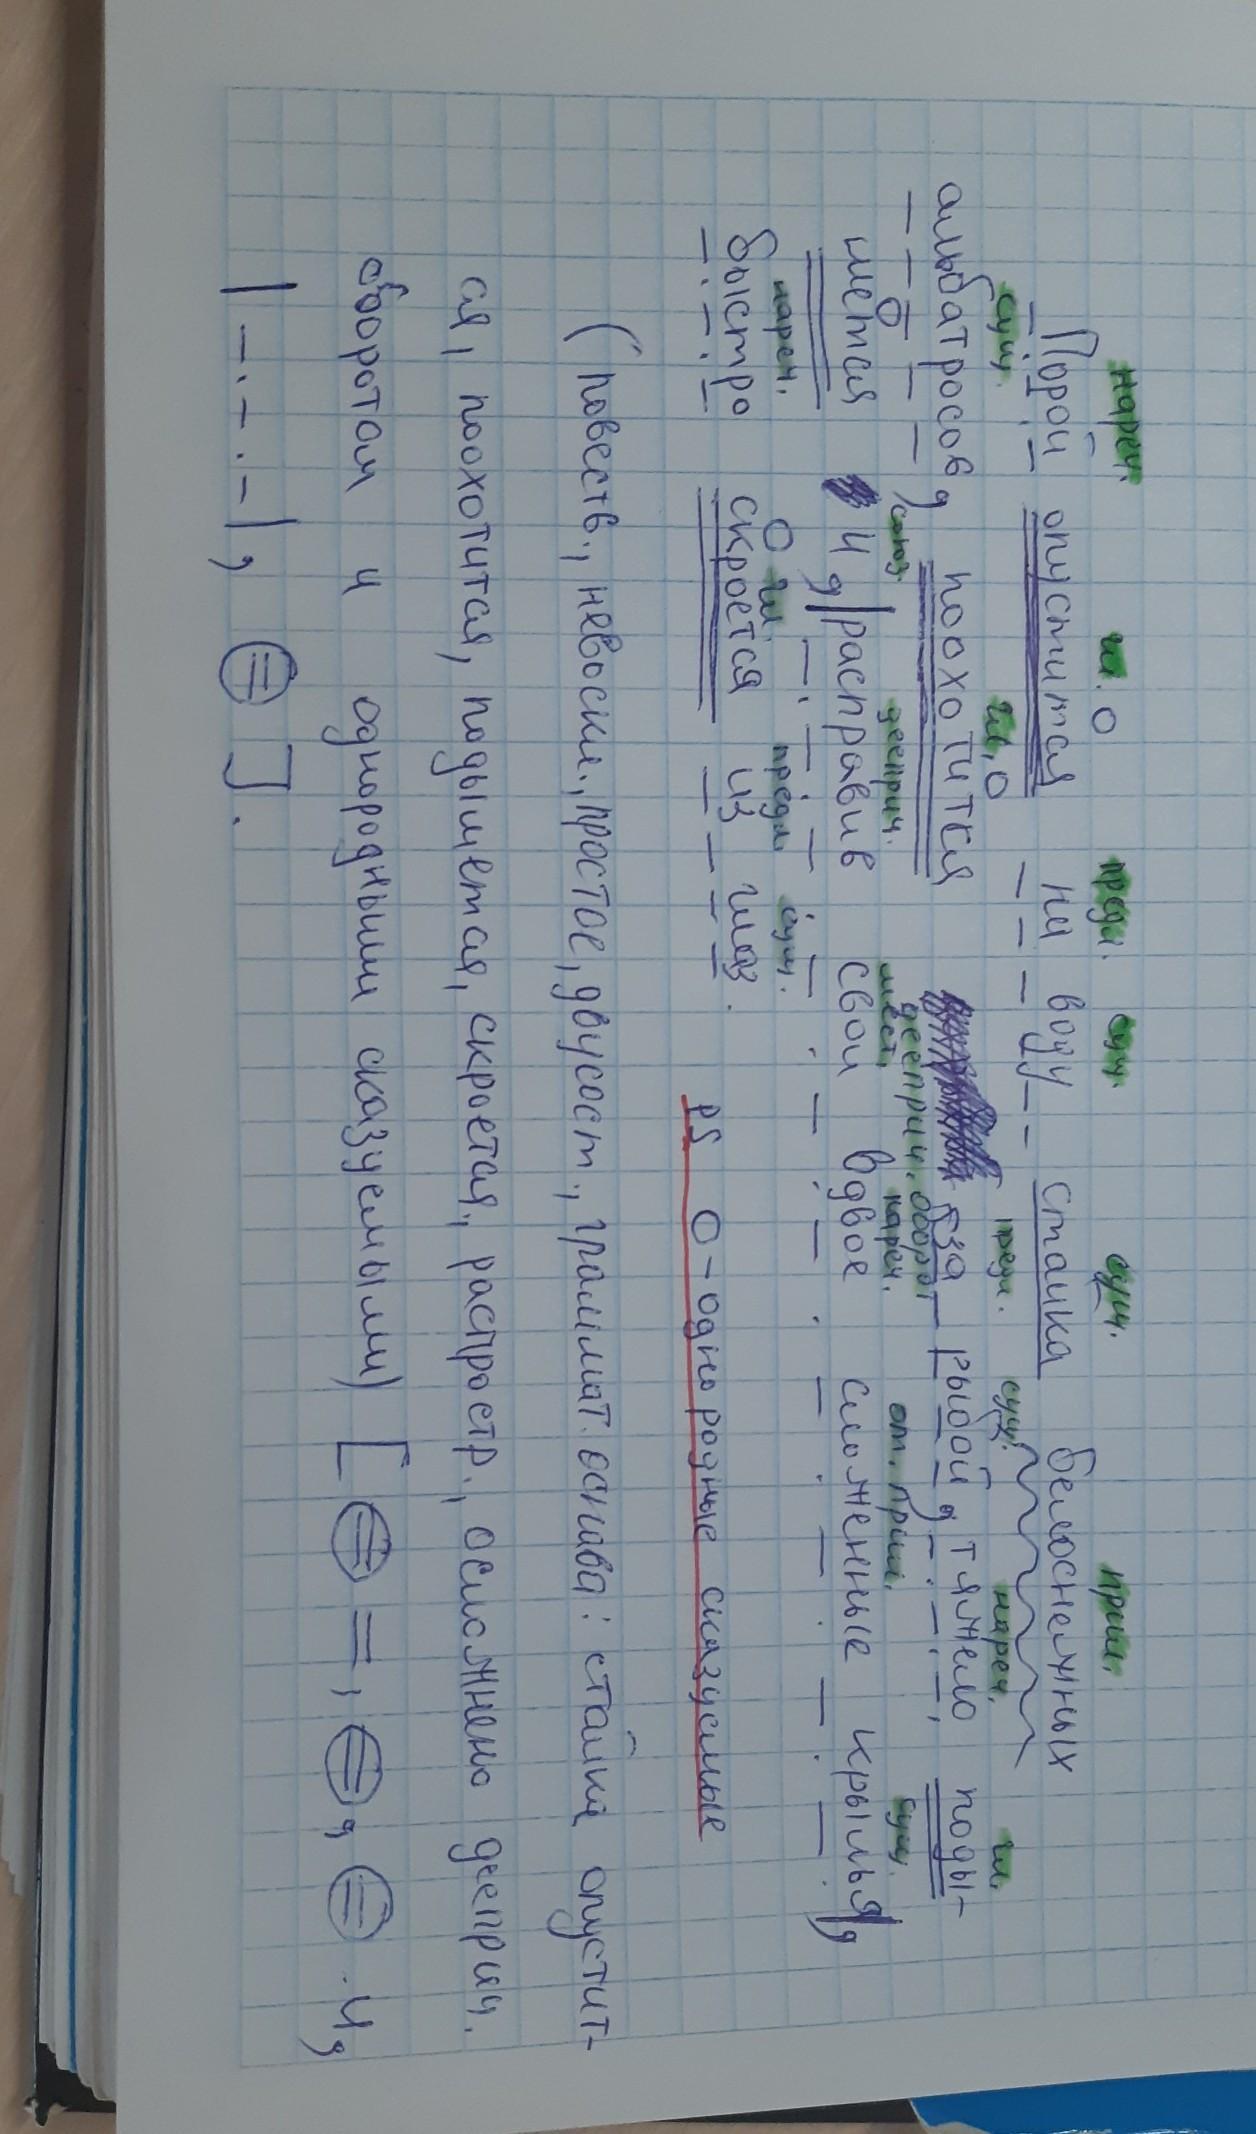 нареч. гл. О предл. сущ. сущ. прил.
Порой опустится на воду стайка белоснежных
сущ. гл. О предл. сущ. нареч. гл.
альбатросов, поохотится за рыбой, тяжело поды-
О союз дееприч. дееприч. оборот мест. нареч. от. прил. сущ.
мется и, |расправив свои вдвое сложенные крылья|,
нареч. О гл. предл. сущ.
быстро скроется из глаз.
PS О - однородные сказуемые
(повеств., невоскл., простое, двусост., граммат. основа: стайка опустит-
ся, поохотится, подымется, скроется, распростр., осложнено дееприч.
оборотом и однородными сказуемыми) [ = , = , = и,
|–·–·–|, = ].